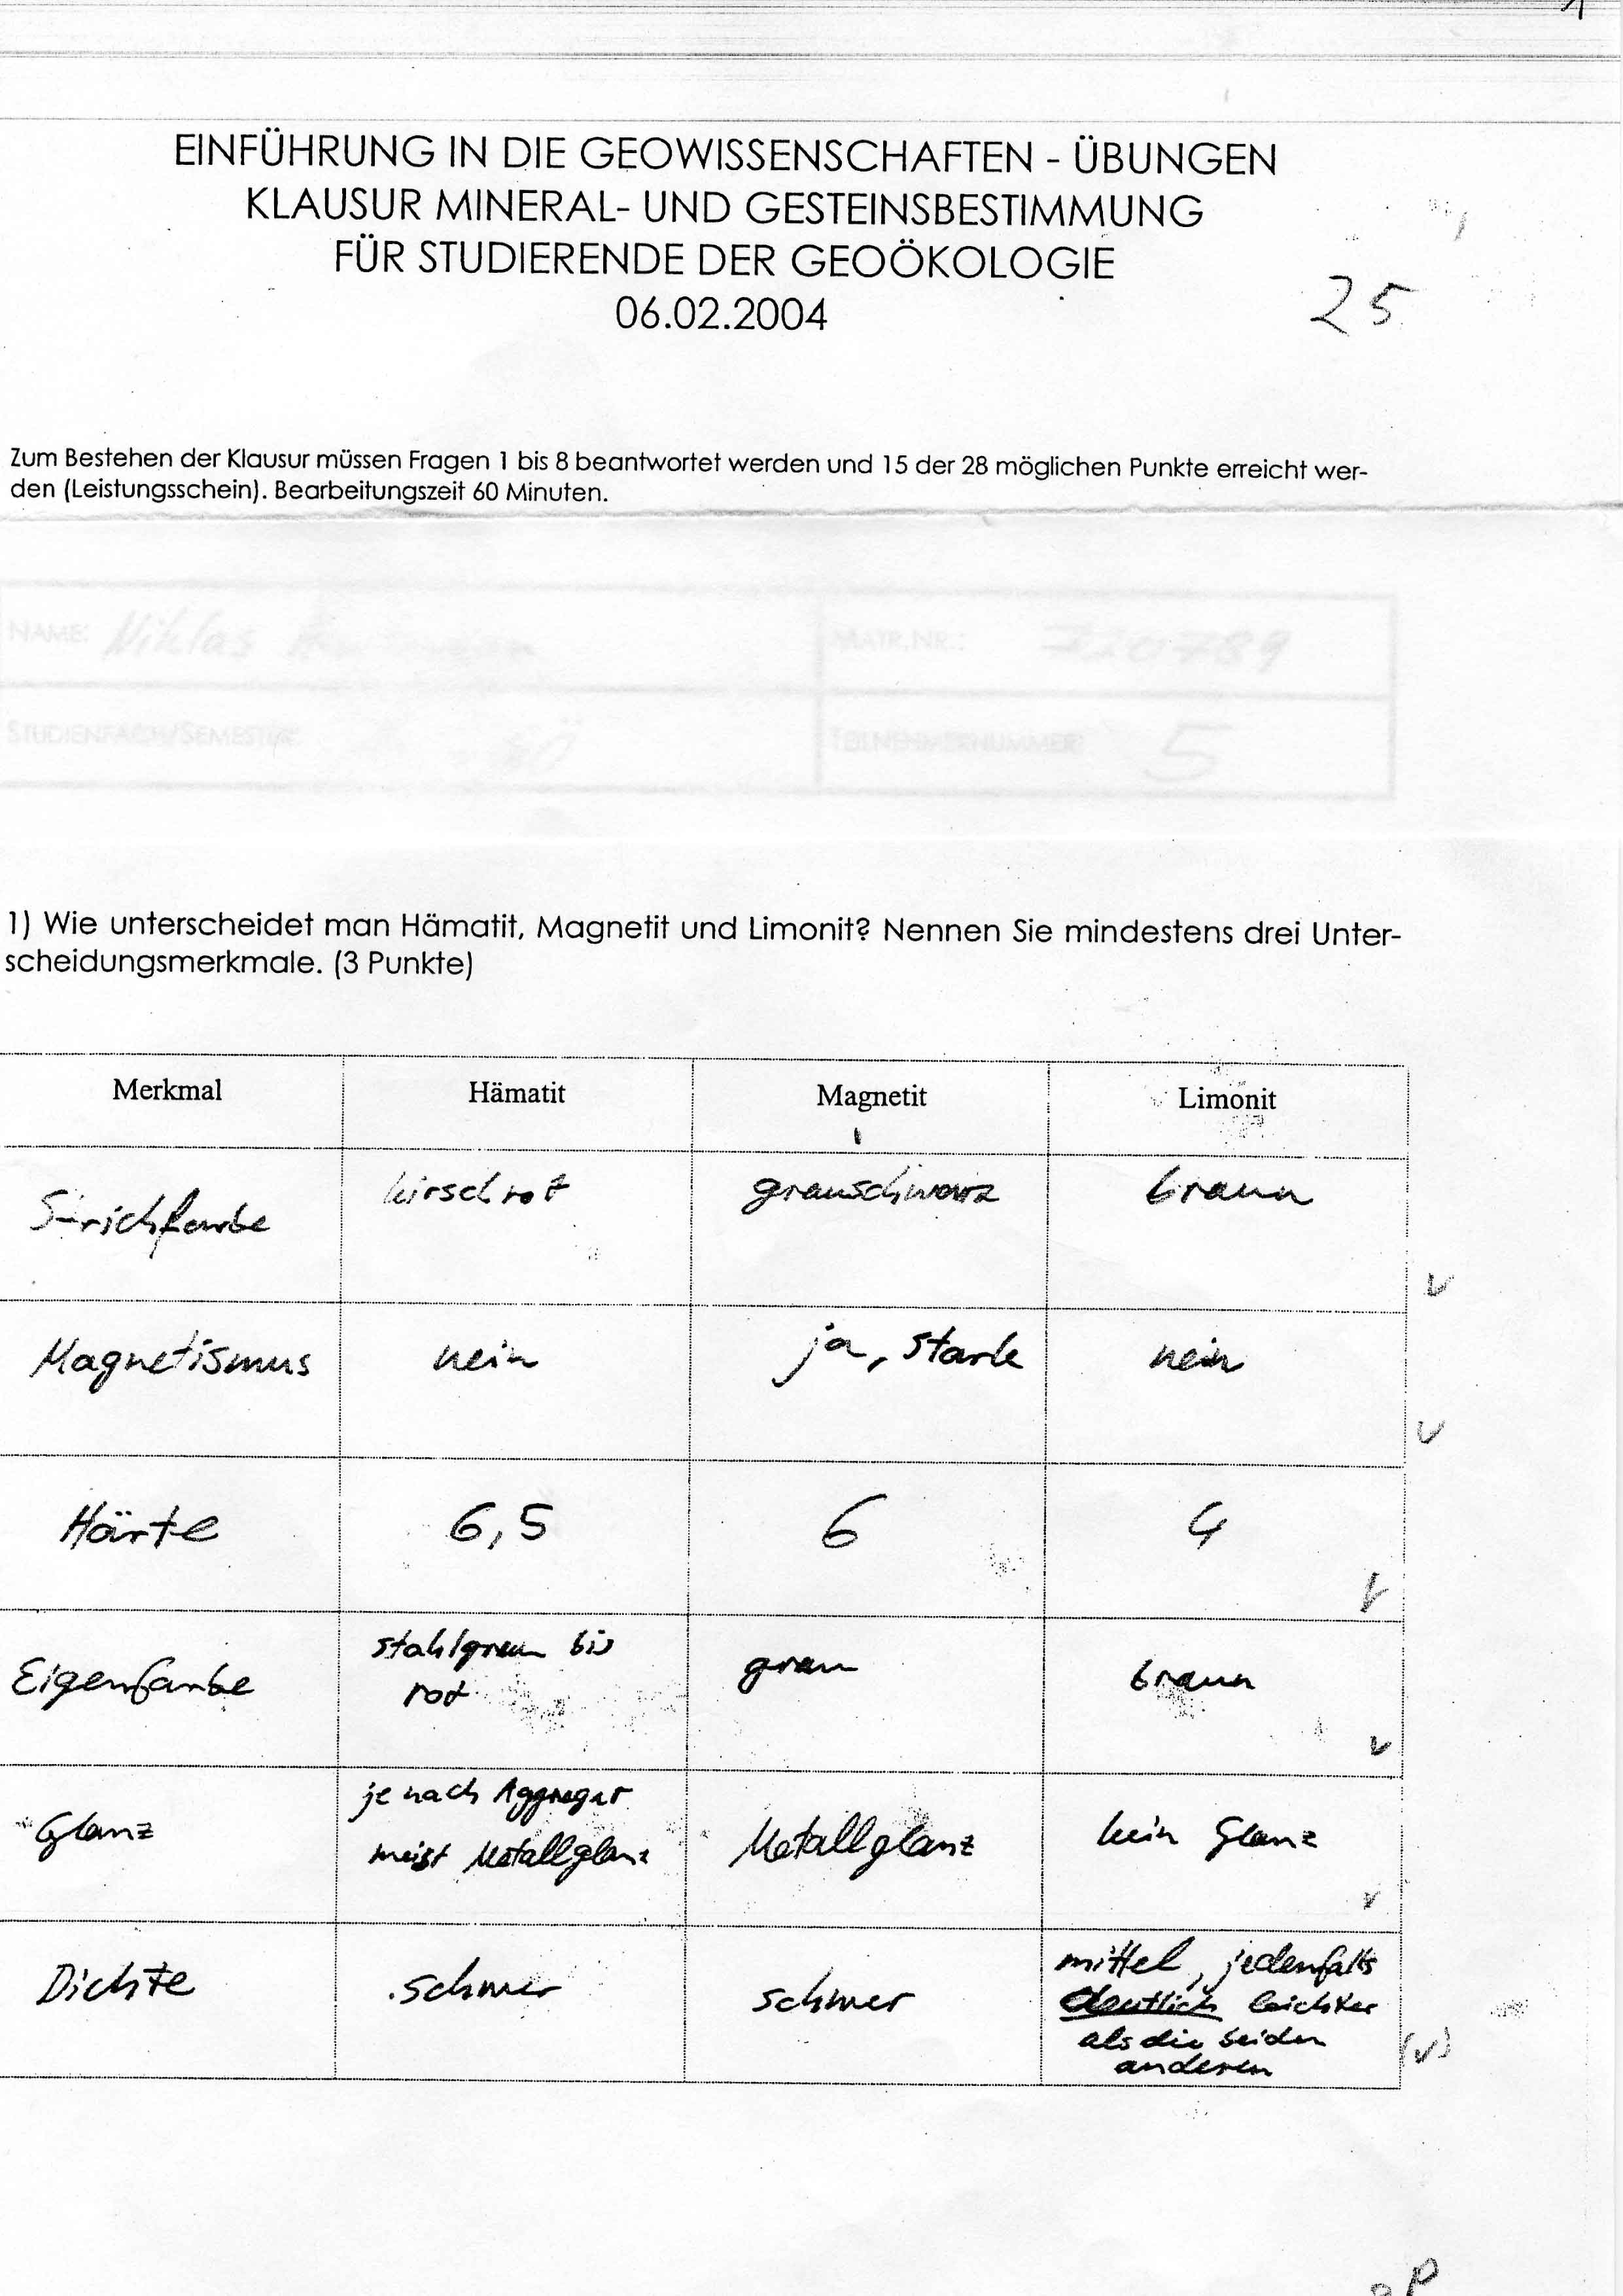 EINFÜHRUNG IN DIE GEOWISSENSCHAFTEN - ÜBUNGEN
KLAUSUR MINERAL- UND GESTEINSBESTIMMUNG
FÜR STUDIERENDE DER GEOÖKOLOGIE
06.02.2004
25
Zum Bestehen der Klausur müssen Fragen 1 bis 8 beantwortet werden und 15 der 28 möglichen Punkte erreicht wer-
den (Leistungsschein). Bearbeitungszeit 60 Minuten.
NAME: Niklas MATR.NR.:
STUDIENFACH/SEMESTER: TEILNEHMERNUMMER: 5
1) Wie unterscheidet man Hämatit, Magnetit und Limonit? Nennen Sie mindestens drei Unter-
scheidungsmerkmale. (3 Punkte)
Merkmal Hämatit Magnetit Limonit
Strichfarbe kirschrot grauschwarz braun
Magnetismus nein ja, stark nein
Härte 6,5 6 4
Eigenfarbe stahlgrau bis rot grau braun
Glanz je nach Aggregat meist Metallglanz Metallglanz kein Glanz
Dichte schwer schwer mittel, jedenfalls
deutlich leichter
als die beiden
anderen